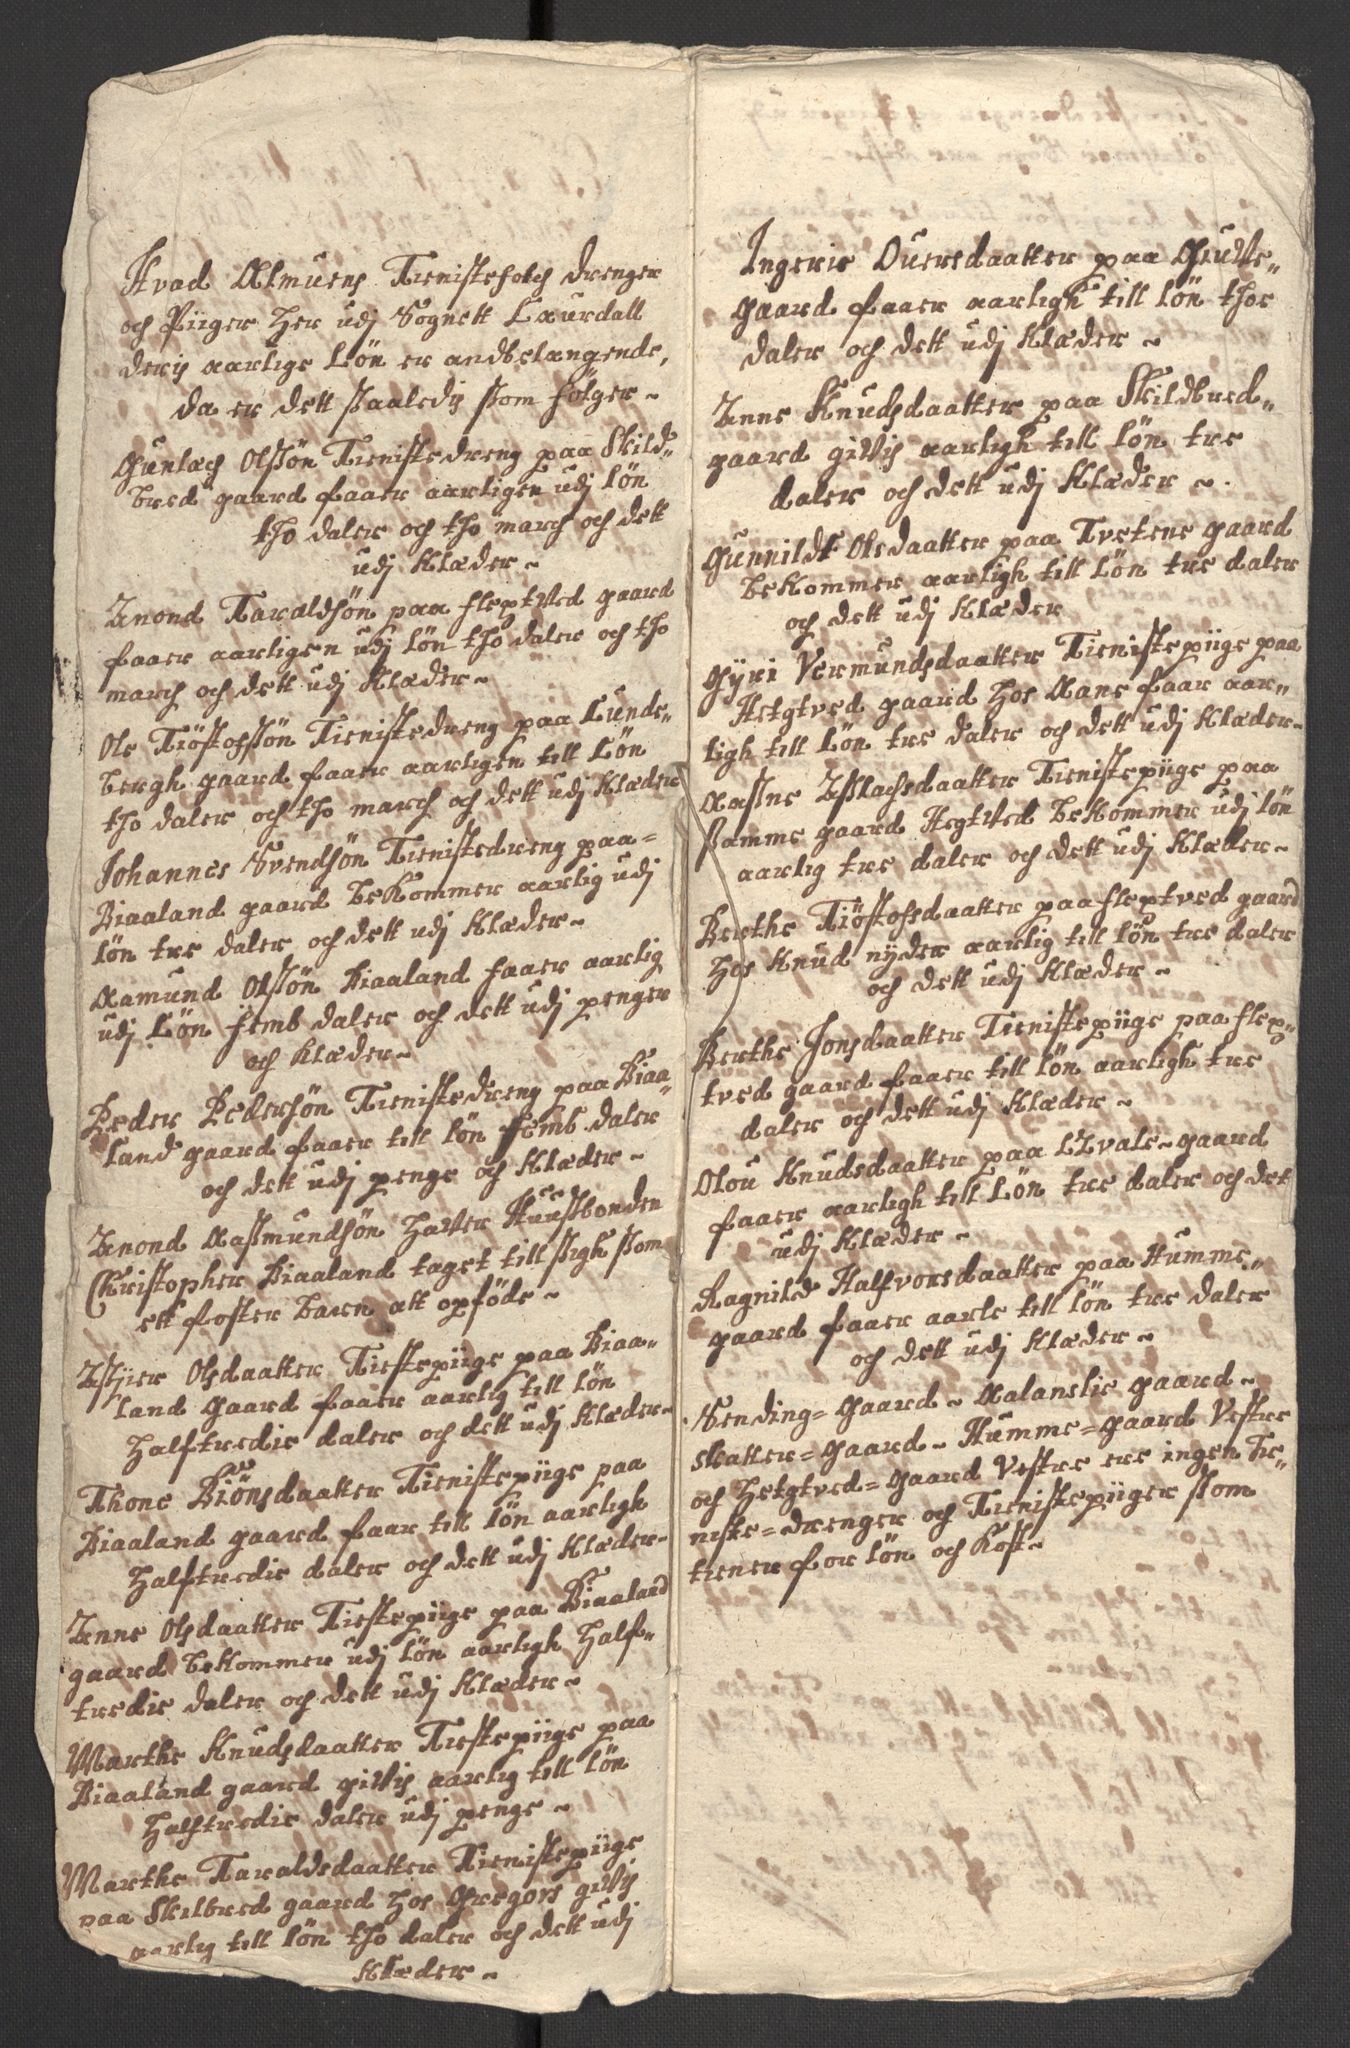 Hvad Almuens Tienistefolch drenger
och Piiger her udj Sognett Laurdall
deris aarlige Løn er andbelangende,
da er dett ssaaledis ssom følger~
Gunlach Olssøn Tienistedreng paa Skild„
bred gaard faaer aarligen udj løn
tho daler och tho march och dett
udj Klæder~
Anond Taraldsøn paa fleptved gaard
faaer aarligen udj løn tho daler och tho
march och dett udj Klæder~
Ole Tiöstofssøn Tienistedreng paa Lunde„
bergh gaard faaer aarligen till løn
tho daler och tho march och dett udj Klæder
Johannes Svendsøn Tienistedreng paa=
Biaaland gaard bekommer aarlig udj
løn tre daler och dett udj Klæder~
Aamund Olssøn Biaaland faaer aarlig
udj Løn femb daler och dett udj penger
och Klæder~
Peder Pedersøn Tienistedreng paa Biaa„
land gaard faaer till løn femb daler
och dett udj penge och Klæder~
Anond Aassmundsøn hafver Huussbonden
Christopher Biaaland taget till ssigh ssom
ett foster barn att opføde~
Assjer Olsdaatter Tiestepiige paa Biaa„
land gaard faaer aarlig till løn
halftredie daler och dett udj Klæder~
Thone Biönsdaatter Tienistepiige paa
Biaaland gaard faar till løn aarligh
halftredie daler och dett udj Klæder~
Anne Olsdaatter Tiestepiige paa Biaaland
gaard bekommer udj løn aarligh half„
tredie daler och dett udj Klæder~
Marthe Knudsdaatter Tiestepiige paa
Biaaland gaard gifvis aarlig till løn
halftredie daler udj penge~
Marthe Taraldsdaatter Tienistepiige
paa Skilbred gaard hos Gregors gifvis
aarlig till løn tho daler och dett udj
Klæder~
Ingerie Ouersdaatter paa
gaard faaer aarligh till løn thoe
daler och dett udj Klæder~
Anne Knudsdaatter paa Skildbred„
gaard gifvis aarligh till løn tre
daler och dett udj Klæder~
Gunnildt Olsdaatter paa Tvetene gaard
bekommer aarligh till løn tre daler
och dett udj Klæder
Gyri Vermundsdaatter Tienistepiige paa
Hetgtved gaard hos Aane faar aar„
ligh till løn tre daler och dett udj Klæder~
Aassne Asslachsdaatter Tienistepiige paa
ssamme gaard Hegtved bekommer udj løn
aarlig tre daler och dett udj Klæder~
Berthe Tiöstofsdaatter paa fleptved gaard
hos Knud nyder aarlig till løn tre daler
och dett udj Klæder~
Berthe Jonsdaatter Tienistepiige paa flep„
tved gaard faaer till løn aarligh tre
daler och dett udj Klæder~
Olou Knudsdaatter paa Lzvale~gaard
faaer aarligh till løn tre daler och det
udj Klæder~
Ragnild Halfvorsdaatter paa Humme„
gaard faaer aarle till løn tre daler
och dett udj Klæder~
Sending=gaard~ Aalanslie gaard~
skatter=gaard~ Humme=gaard Vestre
och Hetgtved=gaard Vestre ere ingen Tie„
niste=drenger och Tienistepiiger ssom
tiener for løn och Kost~